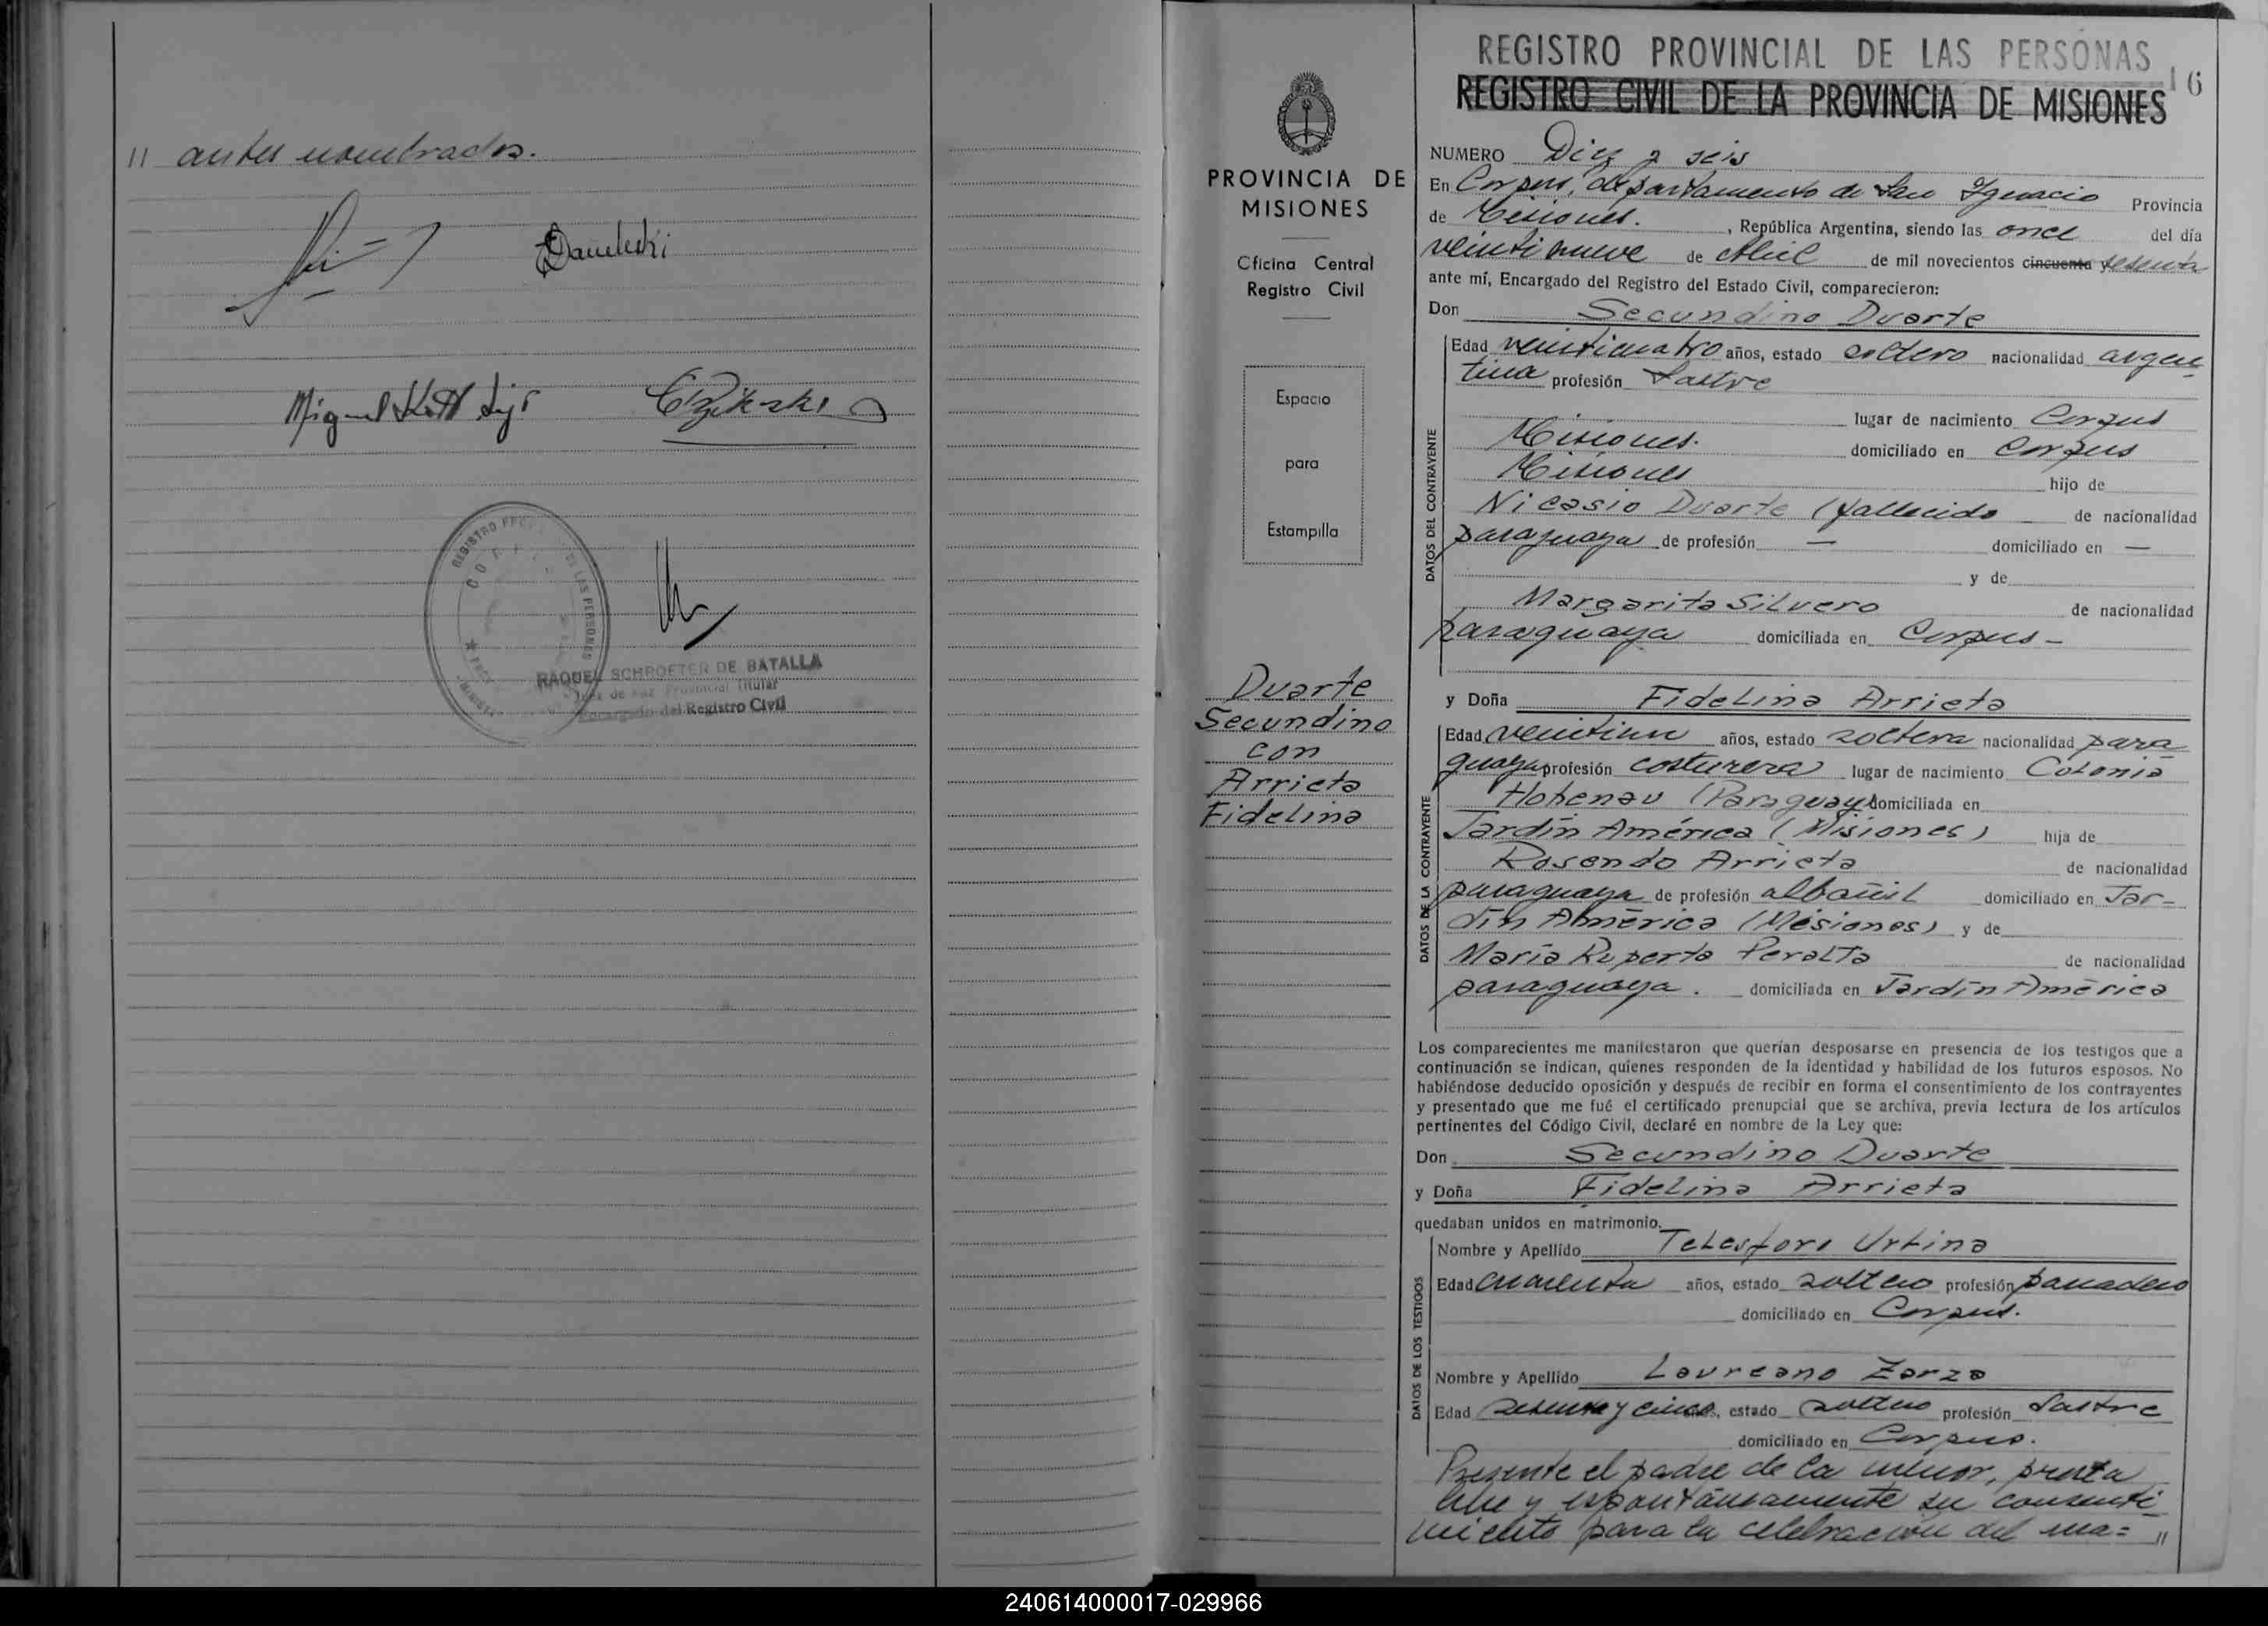 11 antes nombrados.
Miguel Kott hijo
REGISTRO DE LAS PERSONAS
RAQUEL SCHROETER DE BATALLA
Juez de Paz Provincial Titular
Encargado del Registro Civil
PROVINCIA DE
MISIONES
Oficina Central
Registro Civil
Espacio
para
Estampilla
Duarte
Secundino
con
Arrieta
Fidelina
REGISTRO PROVINCIAL DE LAS PERSONAS
REGISTRO CIVIL DE LA PROVINCIA DE MISIONES
16
NUMERO Diez y seis
En Corpus, departamento de San Ignacio Provincia
de Misiones. , República Argentina, siendo las once del día
veintinueve de Abril de mil novecientos cincuenta y sesenta
ante mí, Encargado del Registro del Estado Civil, comparecieron:
Don Secundino Duarte
DATOS DEL CONTRAYENTE
Edad veinticuatro años, estado soltero nacionalidad argen
tina profesión Sastre
lugar de nacimiento Corpus
Misiones. domiciliado en Corpus
Misiones hijo de
Nicasio Duarte (fallecido de nacionalidad
paraguaya de profesión — domiciliado en —
y de
Margarita Silvero de nacionalidad
paraguaya domiciliada en Corpus-
y Doña Fidelina Arrieta
DATOS DE LA CONTRAYENTE
Edad veintiun años, estado soltera nacionalidad para
guaya profesión costurera lugar de nacimiento Colonia
Hohenau (Paraguay) domiciliada en
Jardín América (Misiones) hija de
Rosendo Arrieta de nacionalidad
paraguaya de profesión albañil domiciliado en Jar-
dín América (Misiones) y de
María Ruperta Peralta de nacionalidad
paraguaya. domiciliada en Jardín América
Los comparecientes me manifestaron que querían desposarse en presencia de los testigos que a
continuación se indican, quienes responden de la identidad y habilidad de los futuros esposos. No
habiéndose deducido oposición y después de recibir en forma el consentimiento de los contrayentes
y presentado que me fué el certificado prenupcial que se archiva, previa lectura de los artículos
pertinentes del Código Civil, declaré en nombre de la Ley que:
Don Secundino Duarte
y Doña Fidelina Arrieta
quedaban unidos en matrimonio.
DATOS DE LOS TESTIGOS
Nombre y Apellido Telesforo Urbina
Edad cuarenta años, estado soltero profesión panadero
domiciliado en Corpus.
Nombre y Apellido Laureano Zarza
Edad sesenta y cinco, estado soltero profesión Sastre
domiciliado en Corpus.
Presente el padre de la menor, presta
libre y espontáneamente su consenti
miento para la celebración del ma= 11
240614000017-029966